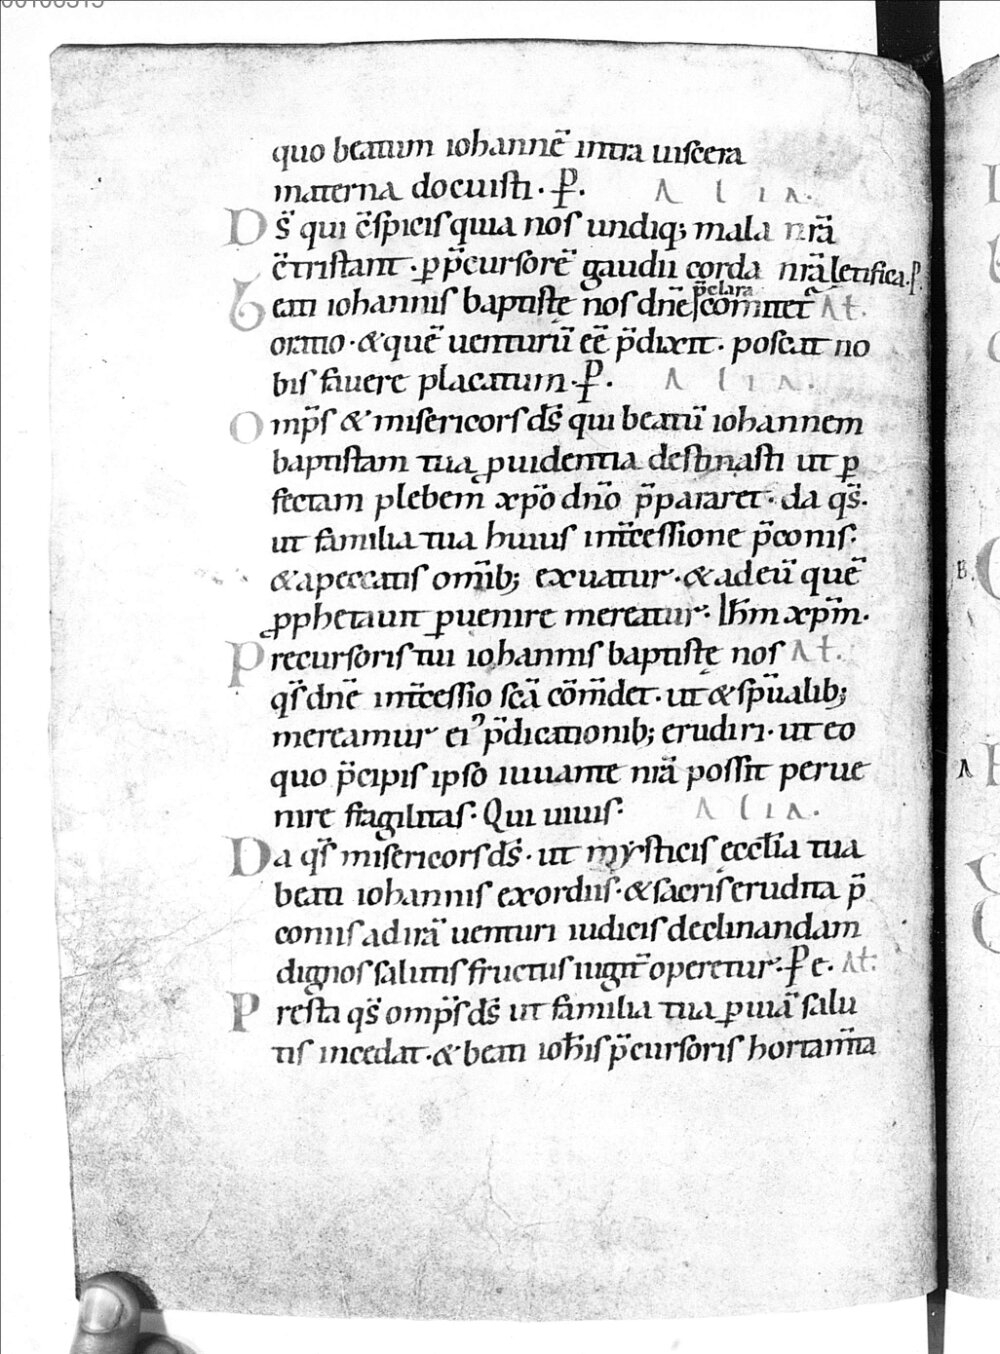 quo beatum iohannē intra uiscera
materna docuisti · P̱. ALIA.
Ds̄ qui c̄spicis quia nos undiq; mala nr̄a
c̄tristant · ꝑ p̄cursorē gaudii corda nr̄a letifica · P̱.
Beati iohannis baptistę nos dn̄e p̄clara com̄itet̄ At.
oratio · & quē uenturū eē p̄dixit · poscat no
bis fauere placatum · P̱. ALIA.
Omp̄s & misericors ds̄ qui beatū iohannem
baptistam tua ꝓuidentia destinasti ut ꝑ
fectam plebem xp̄o dn̄o p̄pararet · da qs̄ ·
ut familia tua huius int̄cessione p̄conis ·
& a peccatis om̄ib; exuatur · & ad eū quē
ꝓphetauit ꝑuenire mereatur · Ih̄m xp̄m ·
Precursoris tui iohannis baptistę nos At.
qs̄ dn̄e int̄cessio sc̄a cōm̄det · ut & sp̄ualib;
mereamur ei᾿ p̄dicationib; erudiri · ut eo
quo p̄cipis ipso iuuante nr̄a possit perue
nire fragilitas · Qui uiuis · ALIA.
Da qs̄ misericors ds̄ · ut mysticis ęccl̄ia tua
beati iohannis exordiis · & sacris erudita p̄
coniis ad irā uenturi iudicis declinandam
dignos salutis fructus iugit̄ operetur · P̱ e · At:
Presta qs̄ omp̄s ds̄ ut familia tua ꝑ uiā salu
tis incedat · & beati ioh̄is p̄cursoris hortam̄ta